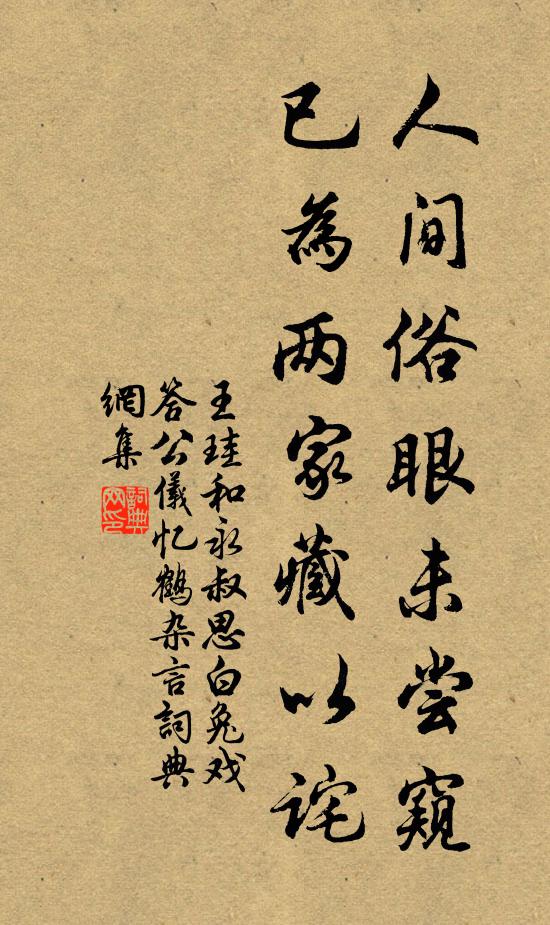 人间俗眼未尝窥
已為两家藏以诧
王珪和永叔思白兔戏
答公儀忆鶴杂言詞典
網集
詞典
网印